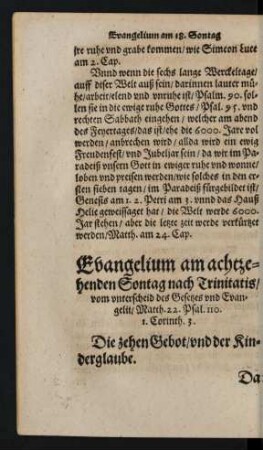 Evangelium am 18. Sontag
ire ruhe vnd grabe kommen/ wie Simeon Luce
am 2. Cap.
Vnnd wenn die sechs lange Werckeltage/
auff diser Welt auß sein/ darinnen lauter mü-
he/ arbeit/ elend vnd vnruhe ist/ Psalm. 90. sol-
len sie in die ewige ruhe Gottes/ Psal. 95. vnd
rechten Sabbath eingehen/ welcher am abend
des Feyertages/ das ist/ ehe die 6000. Jare vol
werden/ anbrechen wird/ allda wird ein ewig
Freudenfest/ vnd Jubeljar sein/ da wir im Pa-
radeiß vnsern Gott in ewiger ruhe vnd wonne/
loben vnd preisen werden/ wie solches in den er-
sten sieben tagen/ im Paradeiß fürgebildet ist/
Genesis am 1. 2. Petri am 3. vnnd das Hauß
Helie geweissaget hat/ die Welt werde 6000.
Jar stehen/ aber die letzte zeit werde verkürtzet
werden/ Matth. am 24. Cap.
Evangelium am achtze-
henden Sontag nach Trinitatis/
vom vnterscheid des Gesetzes vnd Evan-
gelii/ Matth. 22. Psal. 110.
1. Corinth. 3.
Die zehen Gebot/ vnd der Kin-
derglaube.
Da-